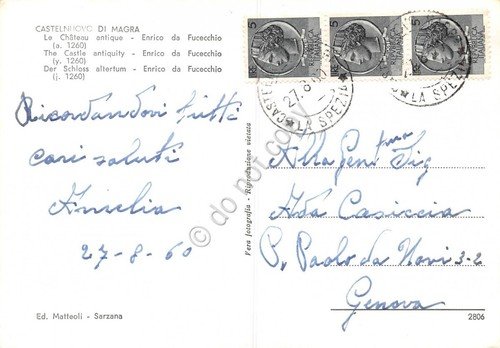 CASTELNUOVO DI MAGRA
Le Château antique - Enrico da Fucecchio
(a. 1260)
The Castle antiquity - Enrico da Fucecchio
(y. 1260)
Der Schloss altertum - Enrico da Fucecchio
(j. 1260)
Ricordandovi tutti
cari saluti
Amelia
27-8-60
Ed. Matteoli - Sarzana
Vera fotografia - Riproduzione vietata
do not copy
5
5
5
27.8
LA SPEZIA
LA SPEZIA
Alla Gent.ma Sig
Ada Casiccia
P. Paolo da Novi 3-2
Genova
2806